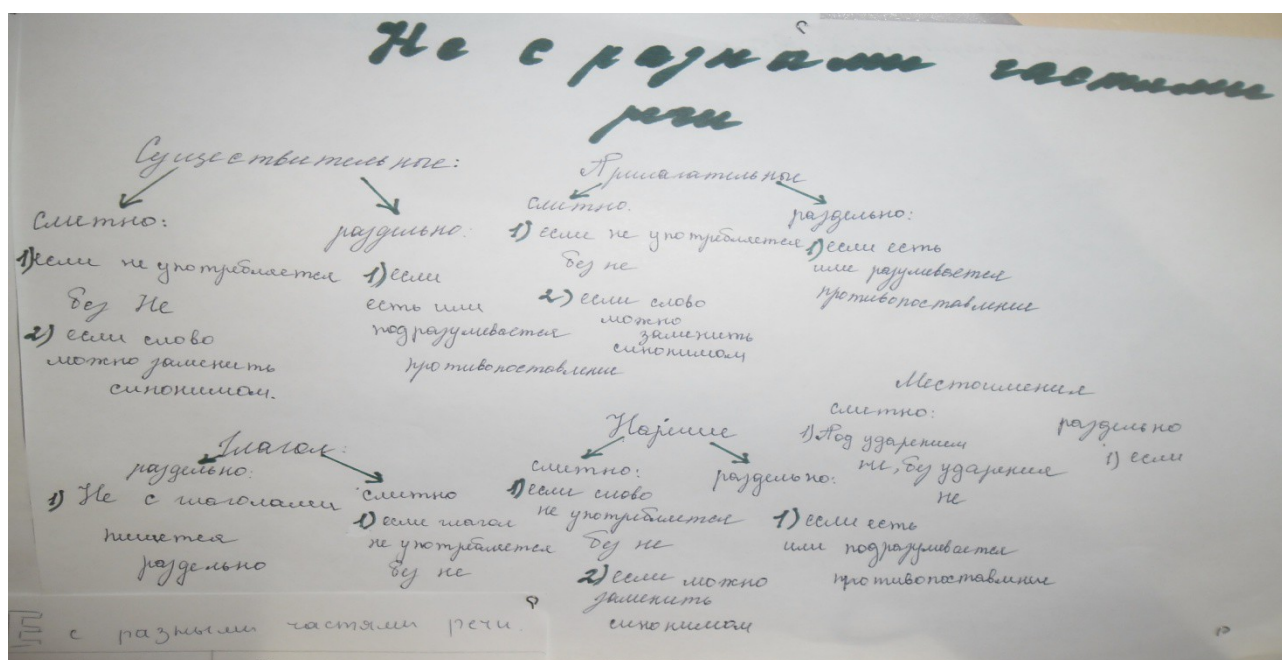 Не с разными частями
речи
Существительные:
слитно:
1) если не употребляется
без Не
2) если слово
можно заменить
синонимом.
раздельно:
1) если
есть или
подразумевается
противопоставление
Прилагательные
слитно.
1) если не употребляется
без не
2) если слово
можно
заменить
синонимом
раздельно:
1) если есть
или разумевается
противопоставление
Глагол:
раздельно:
1) Не с глаголами
пишется
раздельно
слитно
1) если глагол
не употребляется
без не
Наречие
слитно:
1) если слово
не употребляется
без не
2) если можно
заменить
синонимом
раздельно:
1) если есть
или подразумевается
противопоставление
Местоимения
слитно:
1) Под ударением
ни, без ударения
не
раздельно
1) если
с разными частями речи.